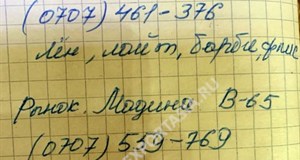 (0707) 461-376
лён, лайт, барби, флис
Рынок. Мадина В-65
(0707) 559-769